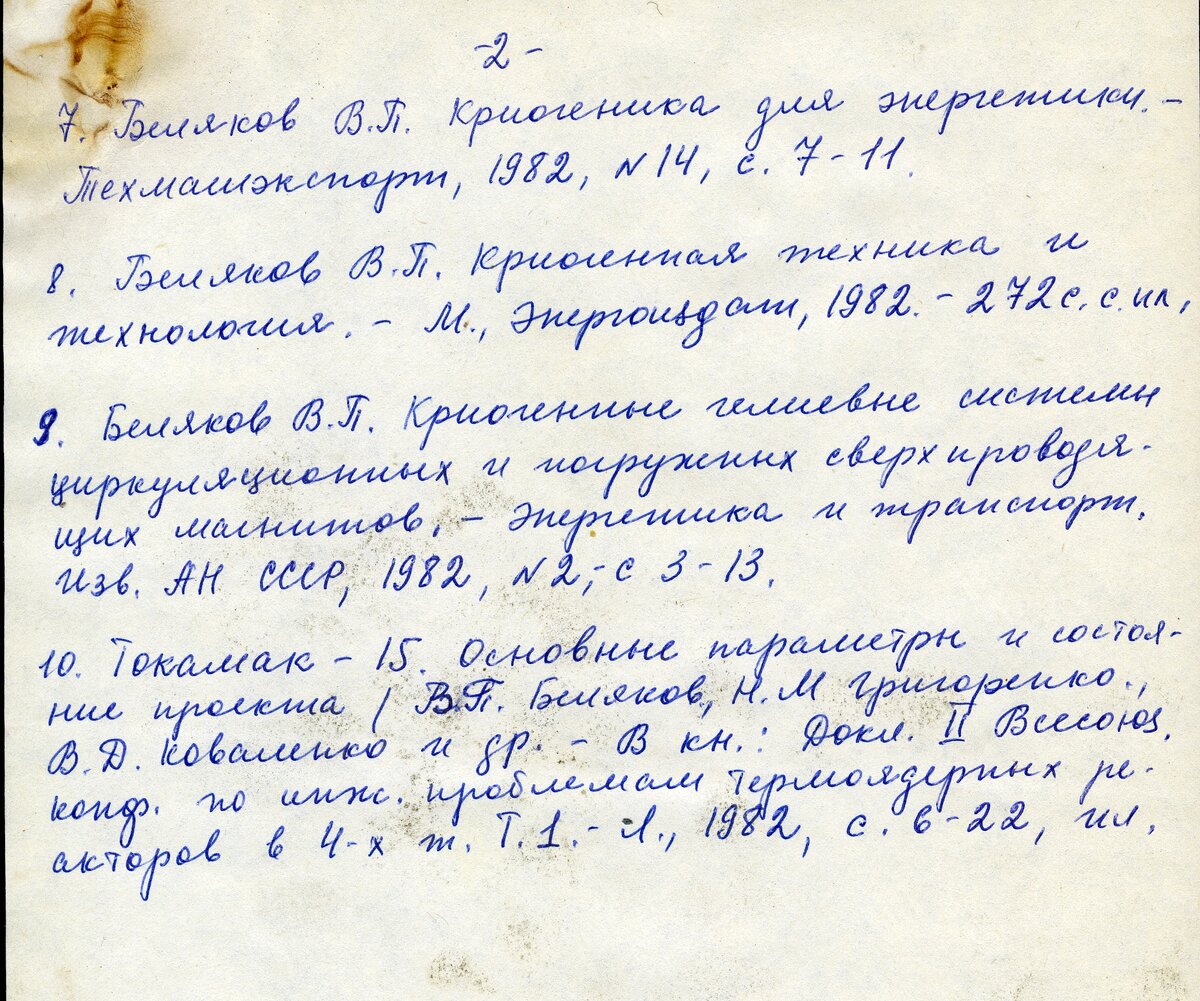 -2-
7. Беляков В.П. Криогеника для энергетики. -
Техмашэкспорт, 1982, N14, с. 7-11.
8. Беляков В.П. Криогенная техника и
технология. - М., Энергоиздат, 1982. - 272с. с ил,
9. Беляков В.П. Криогенные гелиевые системы
циркуляционных и погружных сверхпроводя-
щих магнитов, - Энергетика и транспорт.
Изв. АН СССР, 1982, N2,- с 3-13.
10. Токамак - 15. Основные параметры и состоя-
ние проекта / В.П. Беляков, Н.М Григоренко.,
В.Д. Коваленко и др. - В кн.: Докл. II Всесоюз.
конф. по инж. проблемам термоядерных ре-
акторов в 4-х т. Т.1.- Л., 1982, с. 6-22, ил.